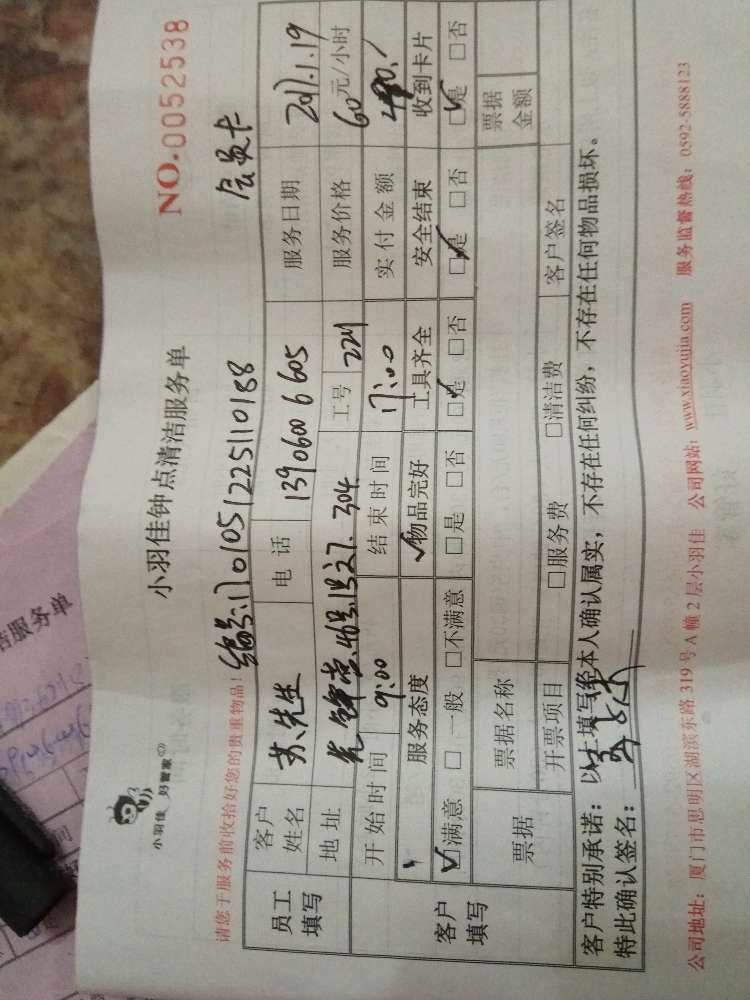 小羽佳 好管家
小羽佳钟点清洁服务单
NO.0052538
请您于服务前收拾好您的贵重物品!
编号:1701051225110188 会员卡
员工填写 客户姓名 苏先生 电话 13906006605 服务日期 2017.1.19
地址 304 工号 221 服务价格 60元/小时
开始时间 9:00 结束时间 17:00 实付金额 480
客户填写 服务态度 物品完好 工具齐全 安全结束 收到卡片
☑满意 □一般 □不满意 □是 □否 ☑是 □否 ☑是 □否 ☑是 □否
票据 票据名称 票据金额
开票项目 □服务费 □清洁费 客户签名
客户特别承诺:以上填写经本人确认属实,不存在任何纠纷,不存在任何物品损坏。
特此确认签名:
公司地址:厦门市思明区湖滨东路319号A幢2层小羽佳 公司网站:www.xiaoyujia.com 服务监督热线:0592-5888123
洁服务单